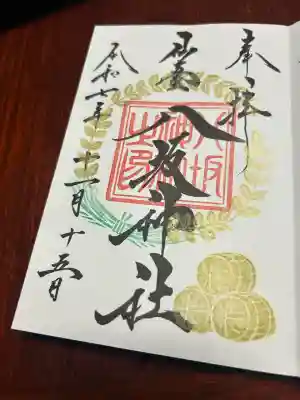 奉拝
八坂神社
令和七年十一月十五日
八坂神社之印